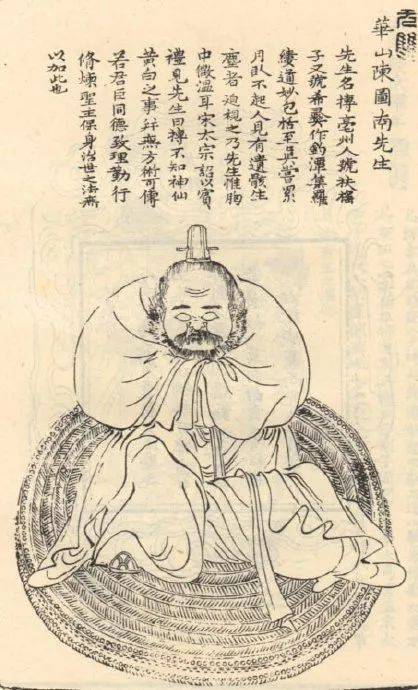 華山陳圖南先生
先生名摶亳州人號扶搖
子又號希夷作釣潭集羅
縷道妙包括至真嘗累
月臥不起人見有遺骸生
塵者迫視之乃先生惟胸
中微溫耳宋太宗詔以賓
禮見先生曰摶不知神仙
黄白之事並無方術可傳
若君臣同德致理勤行
脩煉聖主保身治世之法無
以加此也